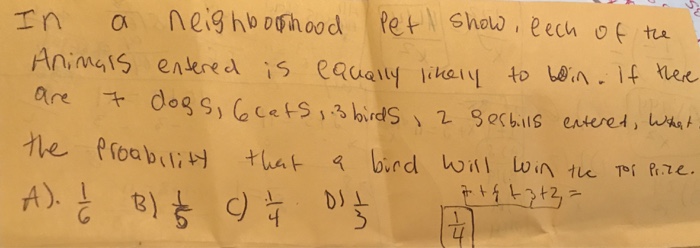 In a neighboorhood Pet show, eech of the
Animals entered is equally likely to win. if there
are 7 dogs, 6 cats, 3 birds, 2 Gerbills entered, what
the Proability that a bird will win the Top Prize.
A). 1/6 B) 1/5 C) 1/4 D) 1/3
1/4